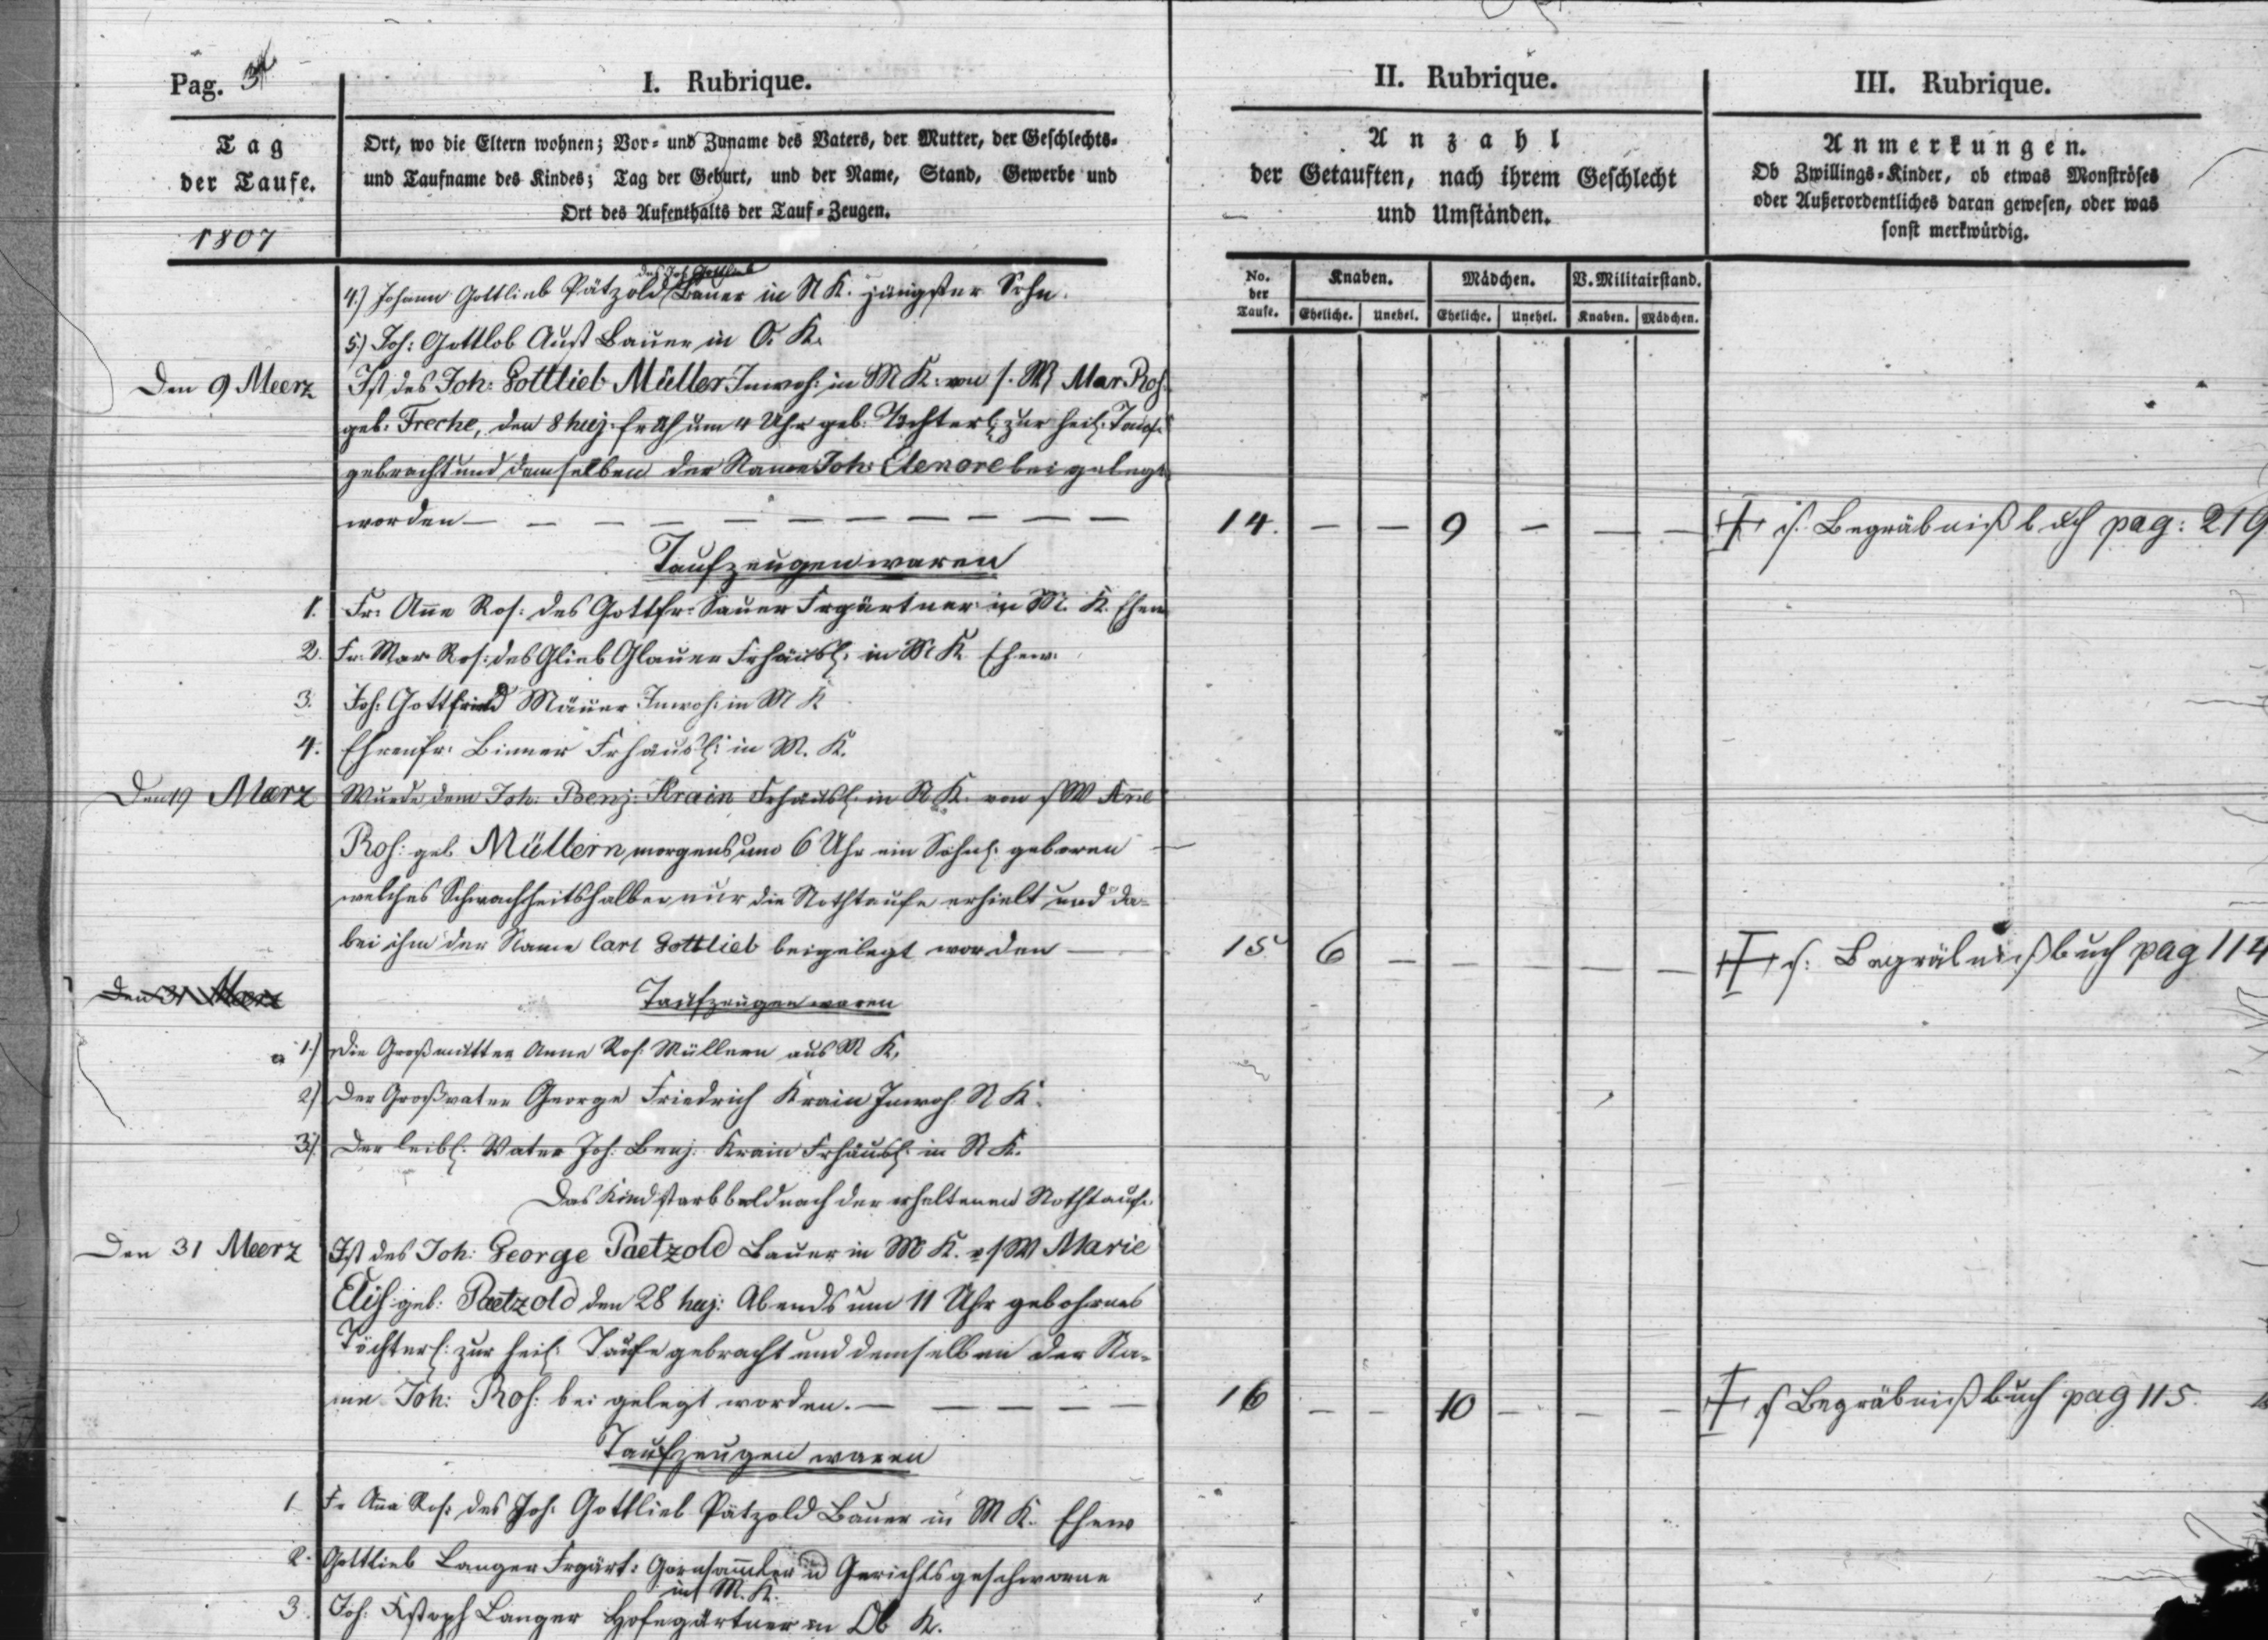 Pag. 34
I. Rubrique.
II. Rubrique.
III. Rubrique.
Tag
der Taufe.
1807
Ort, wo die Eltern wohnen; Vor- und Zuname des Vaters, der Mutter, der Geschlechts-
und Taufname des Kindes; Tag der Geburt, und der Name, Stand, Gewerbe und
Ort des Aufenthalts der Tauf-Zeugen.
Anzahl
der Getauften, nach ihrem Geschlecht
und Umständen.
Anmerkungen.
Ob Zwillings-Kinder, ob etwas Monströses
oder Außerordentliches daran gewesen, oder was
sonst merkwürdig.
No. der Taufe. Knaben. Mädchen. V. Militairstand.
Eheliche. Unehel. Eheliche. Unehel. Knaben. Mädchen.
des Joh. Gottlieb
4.) Johann Gottlieb Pätzold Bauer in N K. jüngster Sohn.
5.) Joh: Gottlob Aust Bauer in O. K.
Den 9 Meerz Ist des Joh: Gottlieb Müller Inwoh: in M K: von s. W Mar. Ros.
geb. Freche, den 8 huj. früh um 4 Uhr geb. Töchterl: zur heil. Taufe
gebracht und demselben der Name Joh: Elenore beigelegt
worden — — — — — — — — — 14. — — 9 — — — ‡ s. Begräbnißbuch pag: 219
Taufzeugen waren
1. Fr: Anne Ros: des Gottfr: Sauer Frgärtner in M. K. Ehew
2. Fr. Mar. Ros: des Glieb Glauer Frhäusl: in M K. Ehew.
3. Joh: Gottfried Mäuer Inwoh: in M K
4. Ehrenfr: Binner Frhäusl: in M. K.
Den 19 Maerz Wurde dem Joh: Benj: Krain Frhäusl. in N K. von s W Anne
Ros: geb Müllern morgens um 6 Uhr ein Söhnl: geboren —
welches Schwachheitshalber nur die Nothtaufe erhielt und da-
bei ihm der Name Carl Gottlieb beigelegt worden — 15 6 — — — — — ‡ s: Begräbnißbuch pag 114
Den 31 Merz
Taufzeugen waren
1.) Die Großmutter Anne Ros: Müllern aus M K.
2) Der Großvater George Friedrich Krain Inwoh. N K.
3). Der leibl: Vater Joh: Benj: Krain Frhäusl: in N K.
Das Kind starb bald nach der erhaltenen Nothtaufe.
Den 31 Meerz Ist des Joh: George Paetzold Bauer in M K. v s W Marie
Elis: geb: Paetzold den 28 huj: Abends um 11 Uhr gebohrnes
Töchterl: zur heil: Taufe gebracht und demselben der Na-
me Joh: Ros: bei gelegt worden. — — — — — 16 — — 10 — — — ‡ s Begräbnißbuch pag 115.
Taufzeugen waren
1 Fr Anna Ros: des Joh: Gottlieb Pätzold Bauer in M K. Ehew
2. Gottlieb Langer Frgärt: Garnsammler u Gerichtsgeschworne
in M. K.
3. Joh: Christoph Langer Hofegärtner in Ob K.